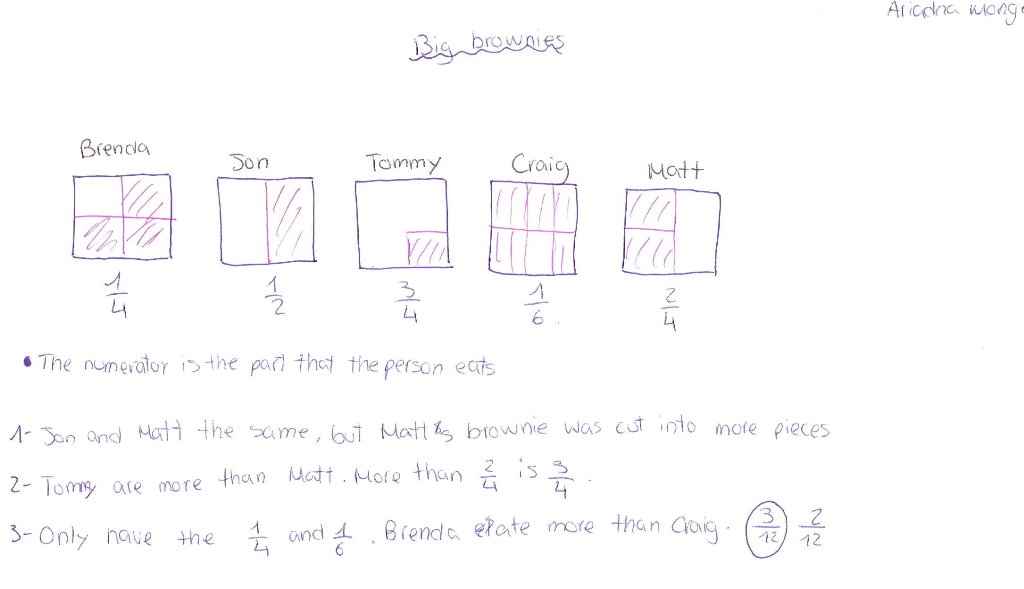 Ariadna Mong
Big brownies
Brenda Jon Tommy Craig Matt
1/4 1/2 3/4 1/6 2/4
• The numerator is the part that the person eats
1- Jon and Matt the same, but Matt's brownie was cut into more pieces
2- Tommy are more than Matt. More than 2/4 is 3/4.
3- Only have the 1/4 and 1/6. Brenda ate more than Craig. 3/12 2/12